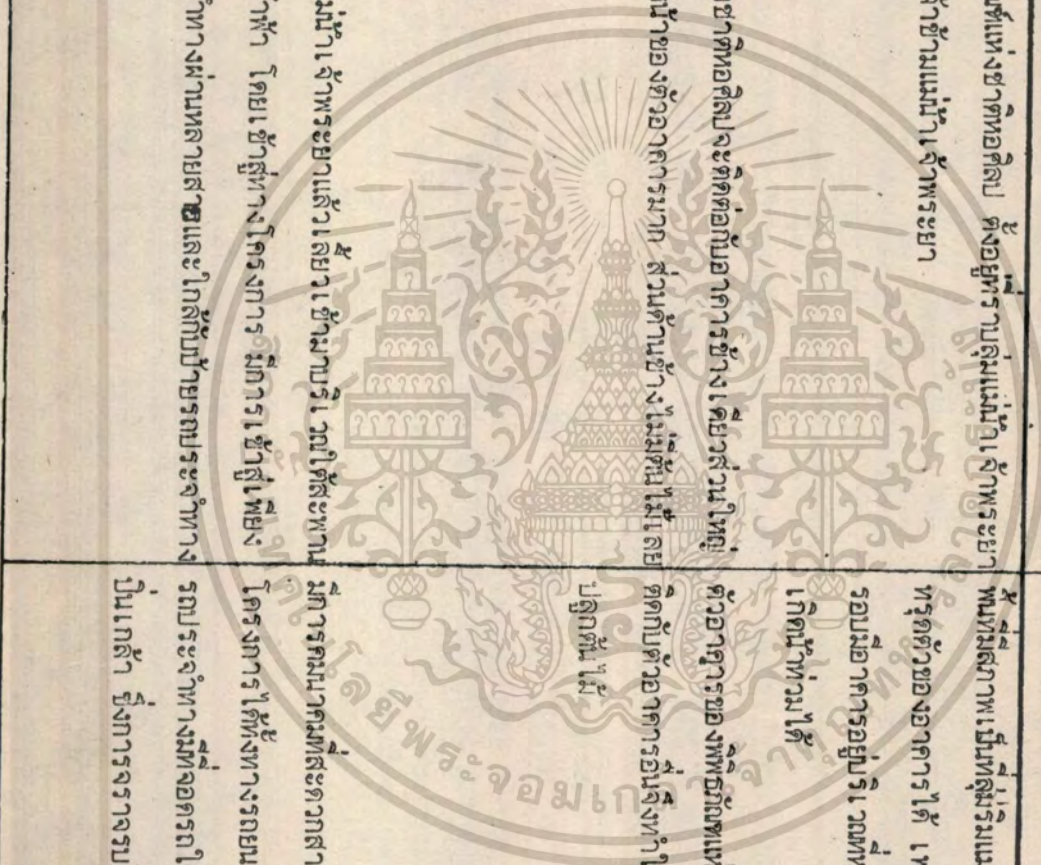 ณฑ์แห่งชาติหอศิลป ตั้งอยู่ที่ราบลุ่มแม่น้ำเจ้าพระยา
ข้ามแม่น้ำเจ้าพระยา
ชาติหอศิลปจะติดต่อกับอาคารข้างเคียงส่วนใหญ่
หน้าของตัวอาคารมาก ส่วนด้านข้างไม่มีต้นไม้เลย
แม่น้ำเจ้าพระยาแล้วเลี้ยวเข้ามาบริเวณใต้สะพาน
โดยเข้าสู่ทางโครงการ มีการเข้าสู่เพียง
ทางผ่านหลายสายและใกล้กับป้ายรถประจำทาง
พื้นที่มีสภาพเป็นที่ลุ่มริมแม่
ทรุดตัวของอาคารได้
รอบมีอาคารอยู่บริเวณที่
เกิดน้ำท่วมได้
ตัวอาคารของพิพิธภัณฑ์แห่
ติดกับตัวอาคารอื่นจึงทำให้
ปลูกต้นไม้
มีการคมนาคมที่สะดวกสา
โครงการได้ทั้งทางรถยน
รถประจำทางมีที่จอดรถใ
ปิ่นเกล้า ซึ่งการจราจรบ
เทคโนโลยีพระจอมเกล้าเจ้าคุณทหาร